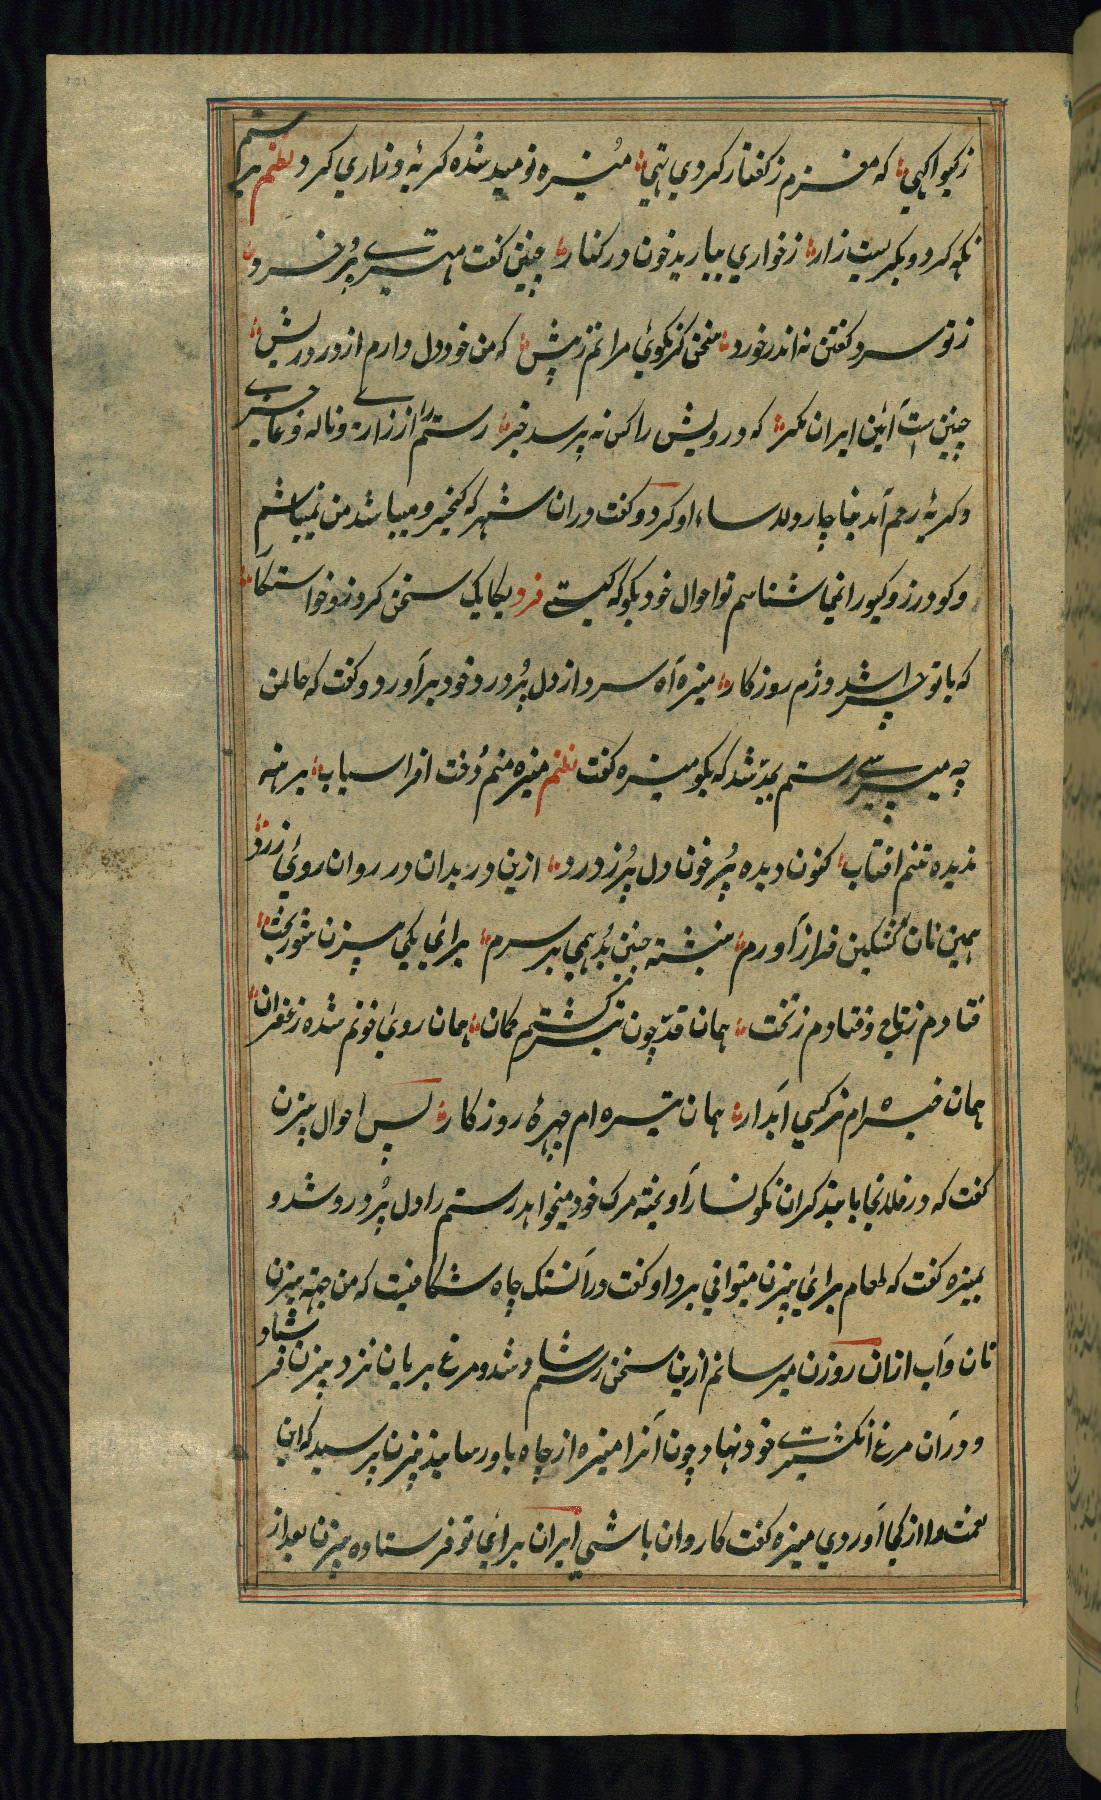 ز کیو اکهی که مغزم ز کفتار کردی تهی منیزه نومید شده کریه و زاری کرد نظم برستم
نکه کرد و بکریست زار ز خواری ببارید خون در کنار چنین کفت ای مهتر پر خرد
ز تو سرد کفتن نه اندر خورد سخن کر نکوئی مرانم ز پیش که من خود دل دارم از درد ریش
چنین است آئین ایران مکر که درویش را کس نه پرسد خبر رستم را از زاری و ناله و عاجزی
و کریه رحم آمد ناچار دلاسا او کرد و کفت دران شهر که کیخسرو میباشد من نمیباشم
و کودرز و کیو را نمیشناسم تو احوال خود بکو که کیستی فرد یکایک سخن کرد زو خواستکار
که با تو چرا شد دژم روزکار منیزه آه سرد از دل پر درد خود برآورد و کفت که حال من
چه میپرسی رستم بجد شد که بکو منیزه کفت نظم منیزه منم دخت افراسیاب برهنه
ندیده تنم افتاب کنون دیده پر خون دل پر ز درد ازین در بدان در روان روی زرد
همین نان کشکین فراز آورم نبشته چنین بد همی بر سرم برای یکی بیزن شوربخت
فتادم ز تاج و فتادم ز تخت همان قد چون تیر کشتم کمان همان روی خونم شده زعفران
همان خیره ام نرکس آبدار همان تیره ام چهره روزکار پس احوال بیزن
کفت که در فلانجا با بند کران نکونسار آویخته مرک خود میخواهد رستم را دل پر درد شد و
بمنیزه کفت که طعام برای بیزن میتوانی برد او کفت در آنسنک چاه شکافیست که من جهته بیزن
نان و آب ازان روزن میرسانم ازین سخن رستم شاد شد و مرغ بریان نزد بیزن فرستاد
و در آن مرغ انکشتری خود نهاد چون آنرا منیزه از چاه باو رسانید بیزن پرسید که این
نعمت را از کجا آوردی منیزه کفت کاروان باشی ایران برای تو فرستاده بیزن بعد از